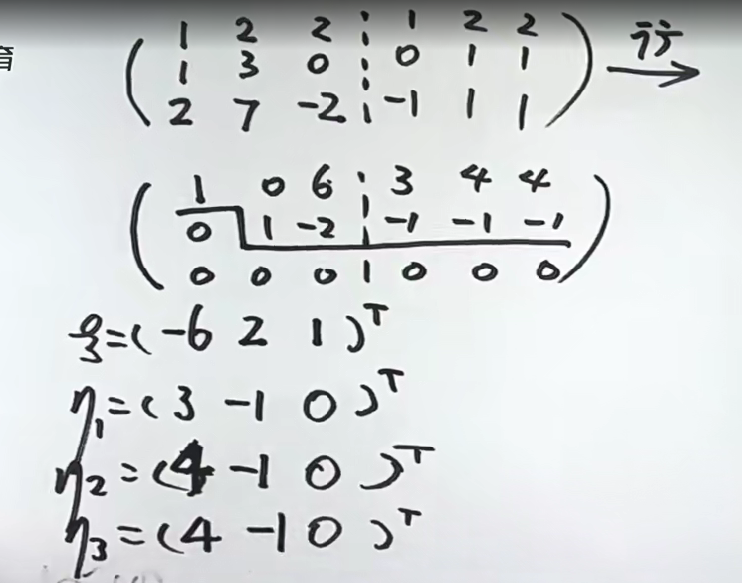 育
( 1 2 2 ¦ 1 2 2
1 3 0 ¦ 0 1 1
2 7 -2 ¦ -1 1 1 ) 行 →
( 1 0 6 ¦ 3 4 4
0 1 -2 ¦ -1 -1 -1
0 0 0 ¦ 0 0 0 )
ξ=(-6 2 1)ᵀ
η₁=(3 -1 0)ᵀ
η₂=(4 -1 0)ᵀ
η₃=(4 -1 0)ᵀ